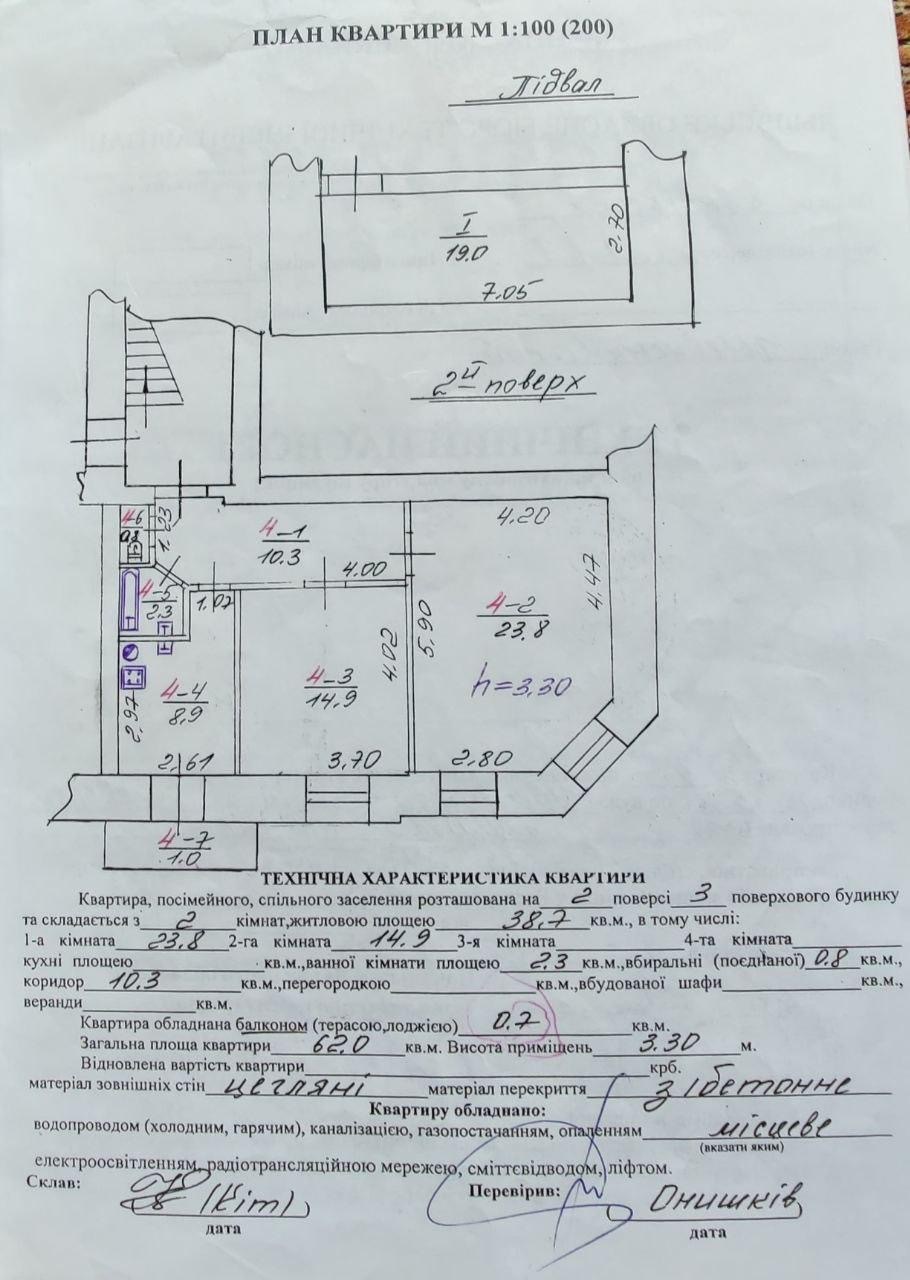 ПЛАН КВАРТИРИ М 1:100 (200)
Підвал
I
19.0
2.70
7.05
2й поверх
4-6
0.8
1.23
4-1
10.3
4.00
4.20
4.47
4-5
2.3
1.07
4-2
23.8
5.90
4.02
h=3.30
4-3
14.9
4-4
8.9
2.97
2.61
3.70
2.80
4-7
1.0
ТЕХНІЧНА ХАРАКТЕРИСТИКА КВАРТИРИ
Квартира, посімейного, спільного заселення розташована на 2 поверсі 3 поверхового будинку
та складається з 2 кімнат,житловою площею 38,7 кв.м., в тому числі:
1-а кімната 23,8 2-га кімната 14.9 3-я кімната 4-та кімната
кухні площею кв.м.,ванної кімнати площею 2.3 кв.м.,вбиральні (поєднаної) 0.8 кв.м.,
коридор 10.3 кв.м.,перегородкою кв.м.,вбудованої шафи кв.м.,
веранди кв.м.
Квартира обладнана балконом (терасою,лоджією) 0.7 кв.м.
Загальна площа квартири 62.0 кв.м. Висота приміщень 3.30 м.
Відновлена вартість квартири крб.
матеріал зовнішніх стін цегляні матеріал перекриття з/бетонне
Квартиру обладнано:
водопроводом (холодним, гарячим), каналізацією, газопостачанням, опаленням місцеве
(вказати яким)
електроосвітленням, радіотрансляційною мережею, сміттєвідводом, ліфтом.
Склав: (Кіт) Перевірив: Онишків
дата дата